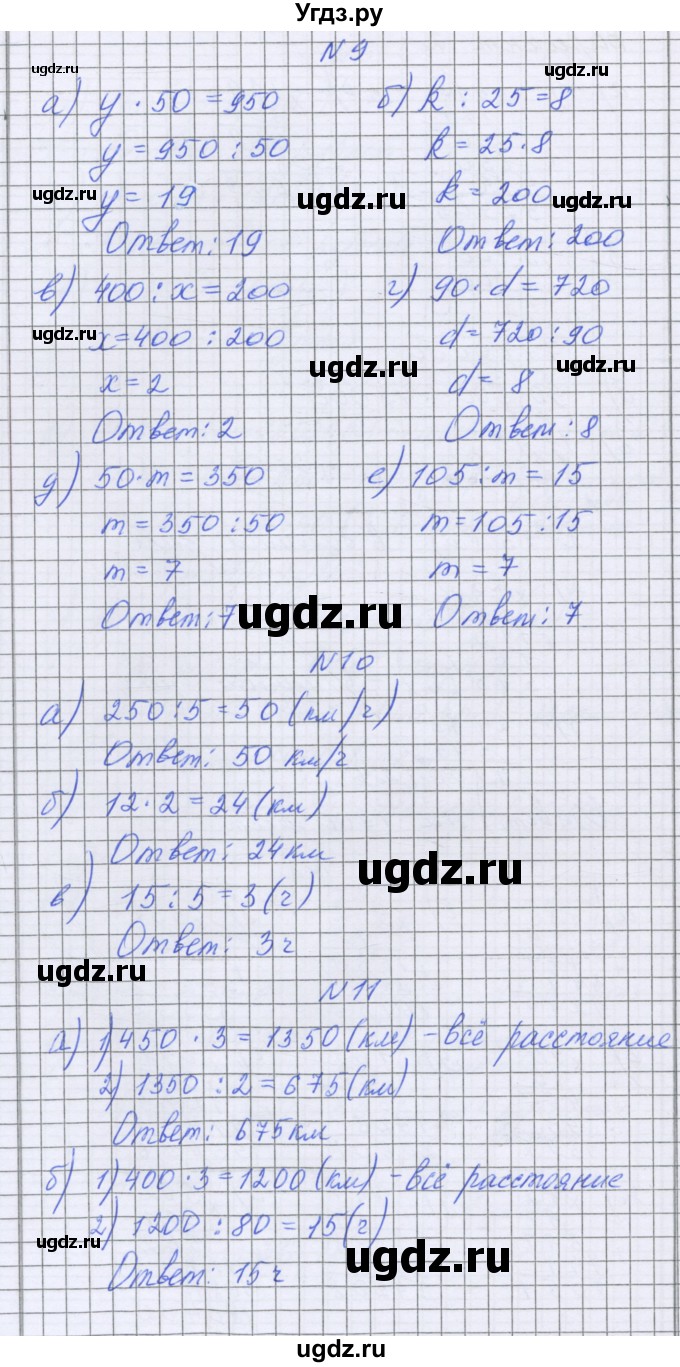 Угдз.ру
N 9
а) y · 50 = 950
y = 950 : 50
y = 19
Ответ: 19
б) k : 25 = 8
k = 25 · 8
k = 200
Ответ: 200
в) 400 : x = 200
x = 400 : 200
x = 2
Ответ: 2
г) 90 · d = 720
d = 720 : 90
d = 8
Ответ: 8
д) 50 · m = 350
m = 350 : 50
m = 7
Ответ: 7
е) 105 : m = 15
m = 105 : 15
m = 7
Ответ: 7
N 10
а) 250 : 5 = 50 (км/ч)
Ответ: 50 км/ч
б) 12 · 2 = 24 (км)
Ответ: 24 км
в) 15 : 5 = 3 (ч)
Ответ: 3 ч
N 11
а) 1) 450 · 3 = 1350 (км) - всё расстояние
2) 1350 : 2 = 675 (км)
Ответ: 675 км
б) 1) 400 · 3 = 1200 (км) - всё расстояние
2) 1200 : 80 = 15 (ч)
Ответ: 15 ч
ugdz.ru
ugdz.ru
ugdz.ru
ugdz.ru
ugdz.ru
ugdz.ru
ugdz.ru
ugdz.ru
ugdz.ru
ugdz.ru
ugdz.ru
ugdz.ru
ugdz.ru
ugdz.ru